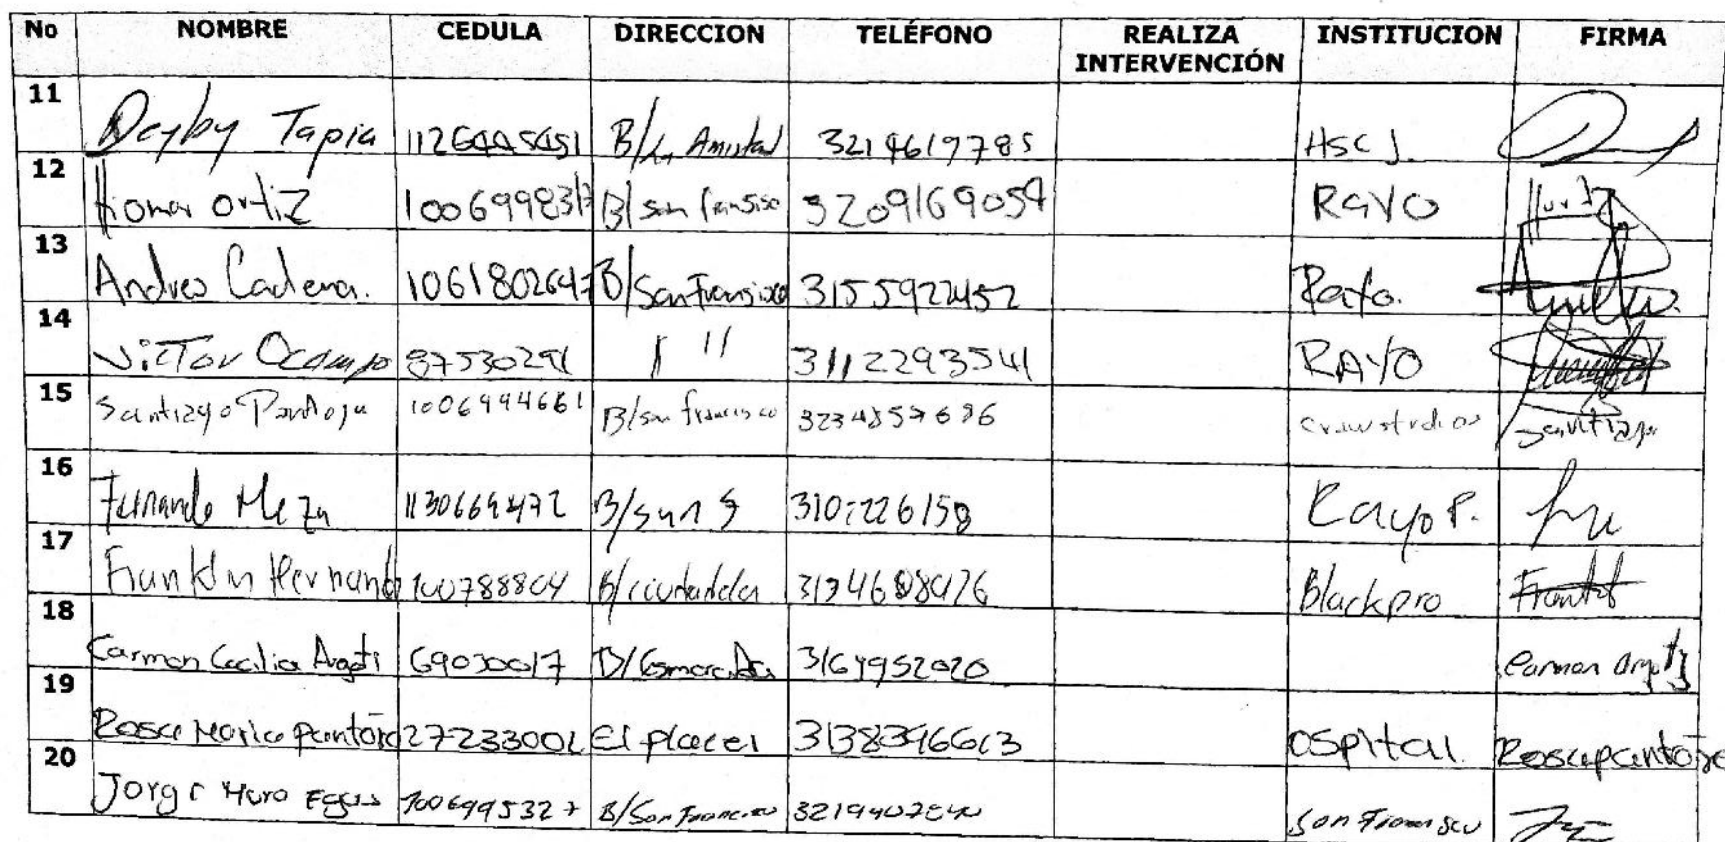 No NOMBRE CEDULA DIRECCION TELÉFONO REALIZA INTERVENCIÓN INSTITUCION FIRMA
11 Deyby Tapia B/La Amistad 3214619785 HSCJ.
12 Homar Ortiz 1006998317 B/ san fransiso 3209169054 RAYO
13 Andres Cadena. 1061802647 B/San Fransisco 3155922452 Rayo.
14 Victor Ocampo 87530291 " 3112293541 RAYO
15 Santiago Pantoja 1006994661 B/san francisco Santiago
16 Fernando Meza 1130669472 B/san F Rayo P.
17 Franklin Hernand 100788804 B/ciudadela Blackpro
18 Carmen Cecilia Argoti 69030017 B/Esmeralda 3164952020 Carmen Argoty
19 Rosa Maria pantoja El placer 3138396613 OSpital. Rosa pantoja
20 Jorge 1006995327 B/San Francisco San Francisco